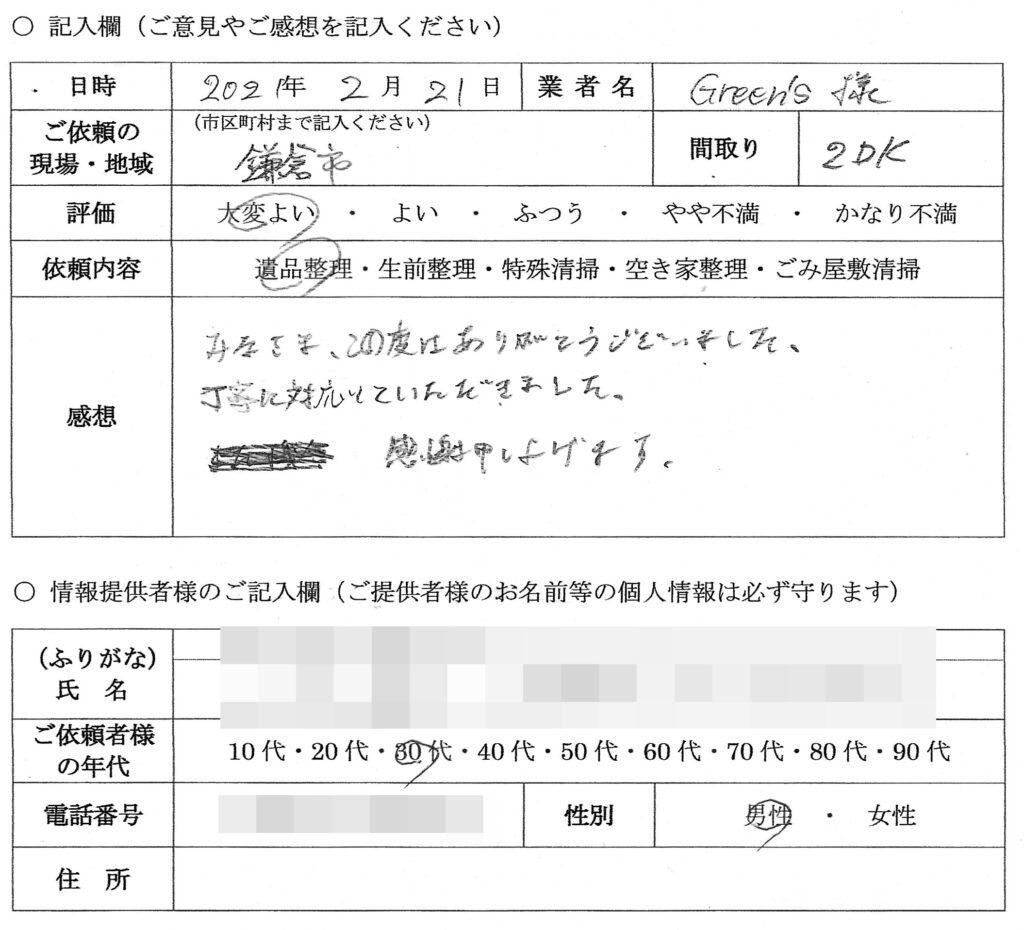 ○ 記入欄（ご意見やご感想を記入ください）
日時 2021年 2月 21日 業者名 Green's 様
（市区町村まで記入ください）
ご依頼の現場・地域 鎌倉市 間取り 2DK
評価 大変よい ・ よい ・ ふつう ・ やや不満 ・ かなり不満
依頼内容 遺品整理・生前整理・特殊清掃・空き家整理・ごみ屋敷清掃
感想
みなさま、この度はありがとうございました。
丁寧に対応していただきました。
感謝申し上げます。
○ 情報提供者様のご記入欄（ご提供者様のお名前等の個人情報は必ず守ります）
（ふりがな）
氏 名
ご依頼者様の年代 10代・20代・30代・40代・50代・60代・70代・80代・90代
電話番号 性別 男性 ・ 女性
住 所